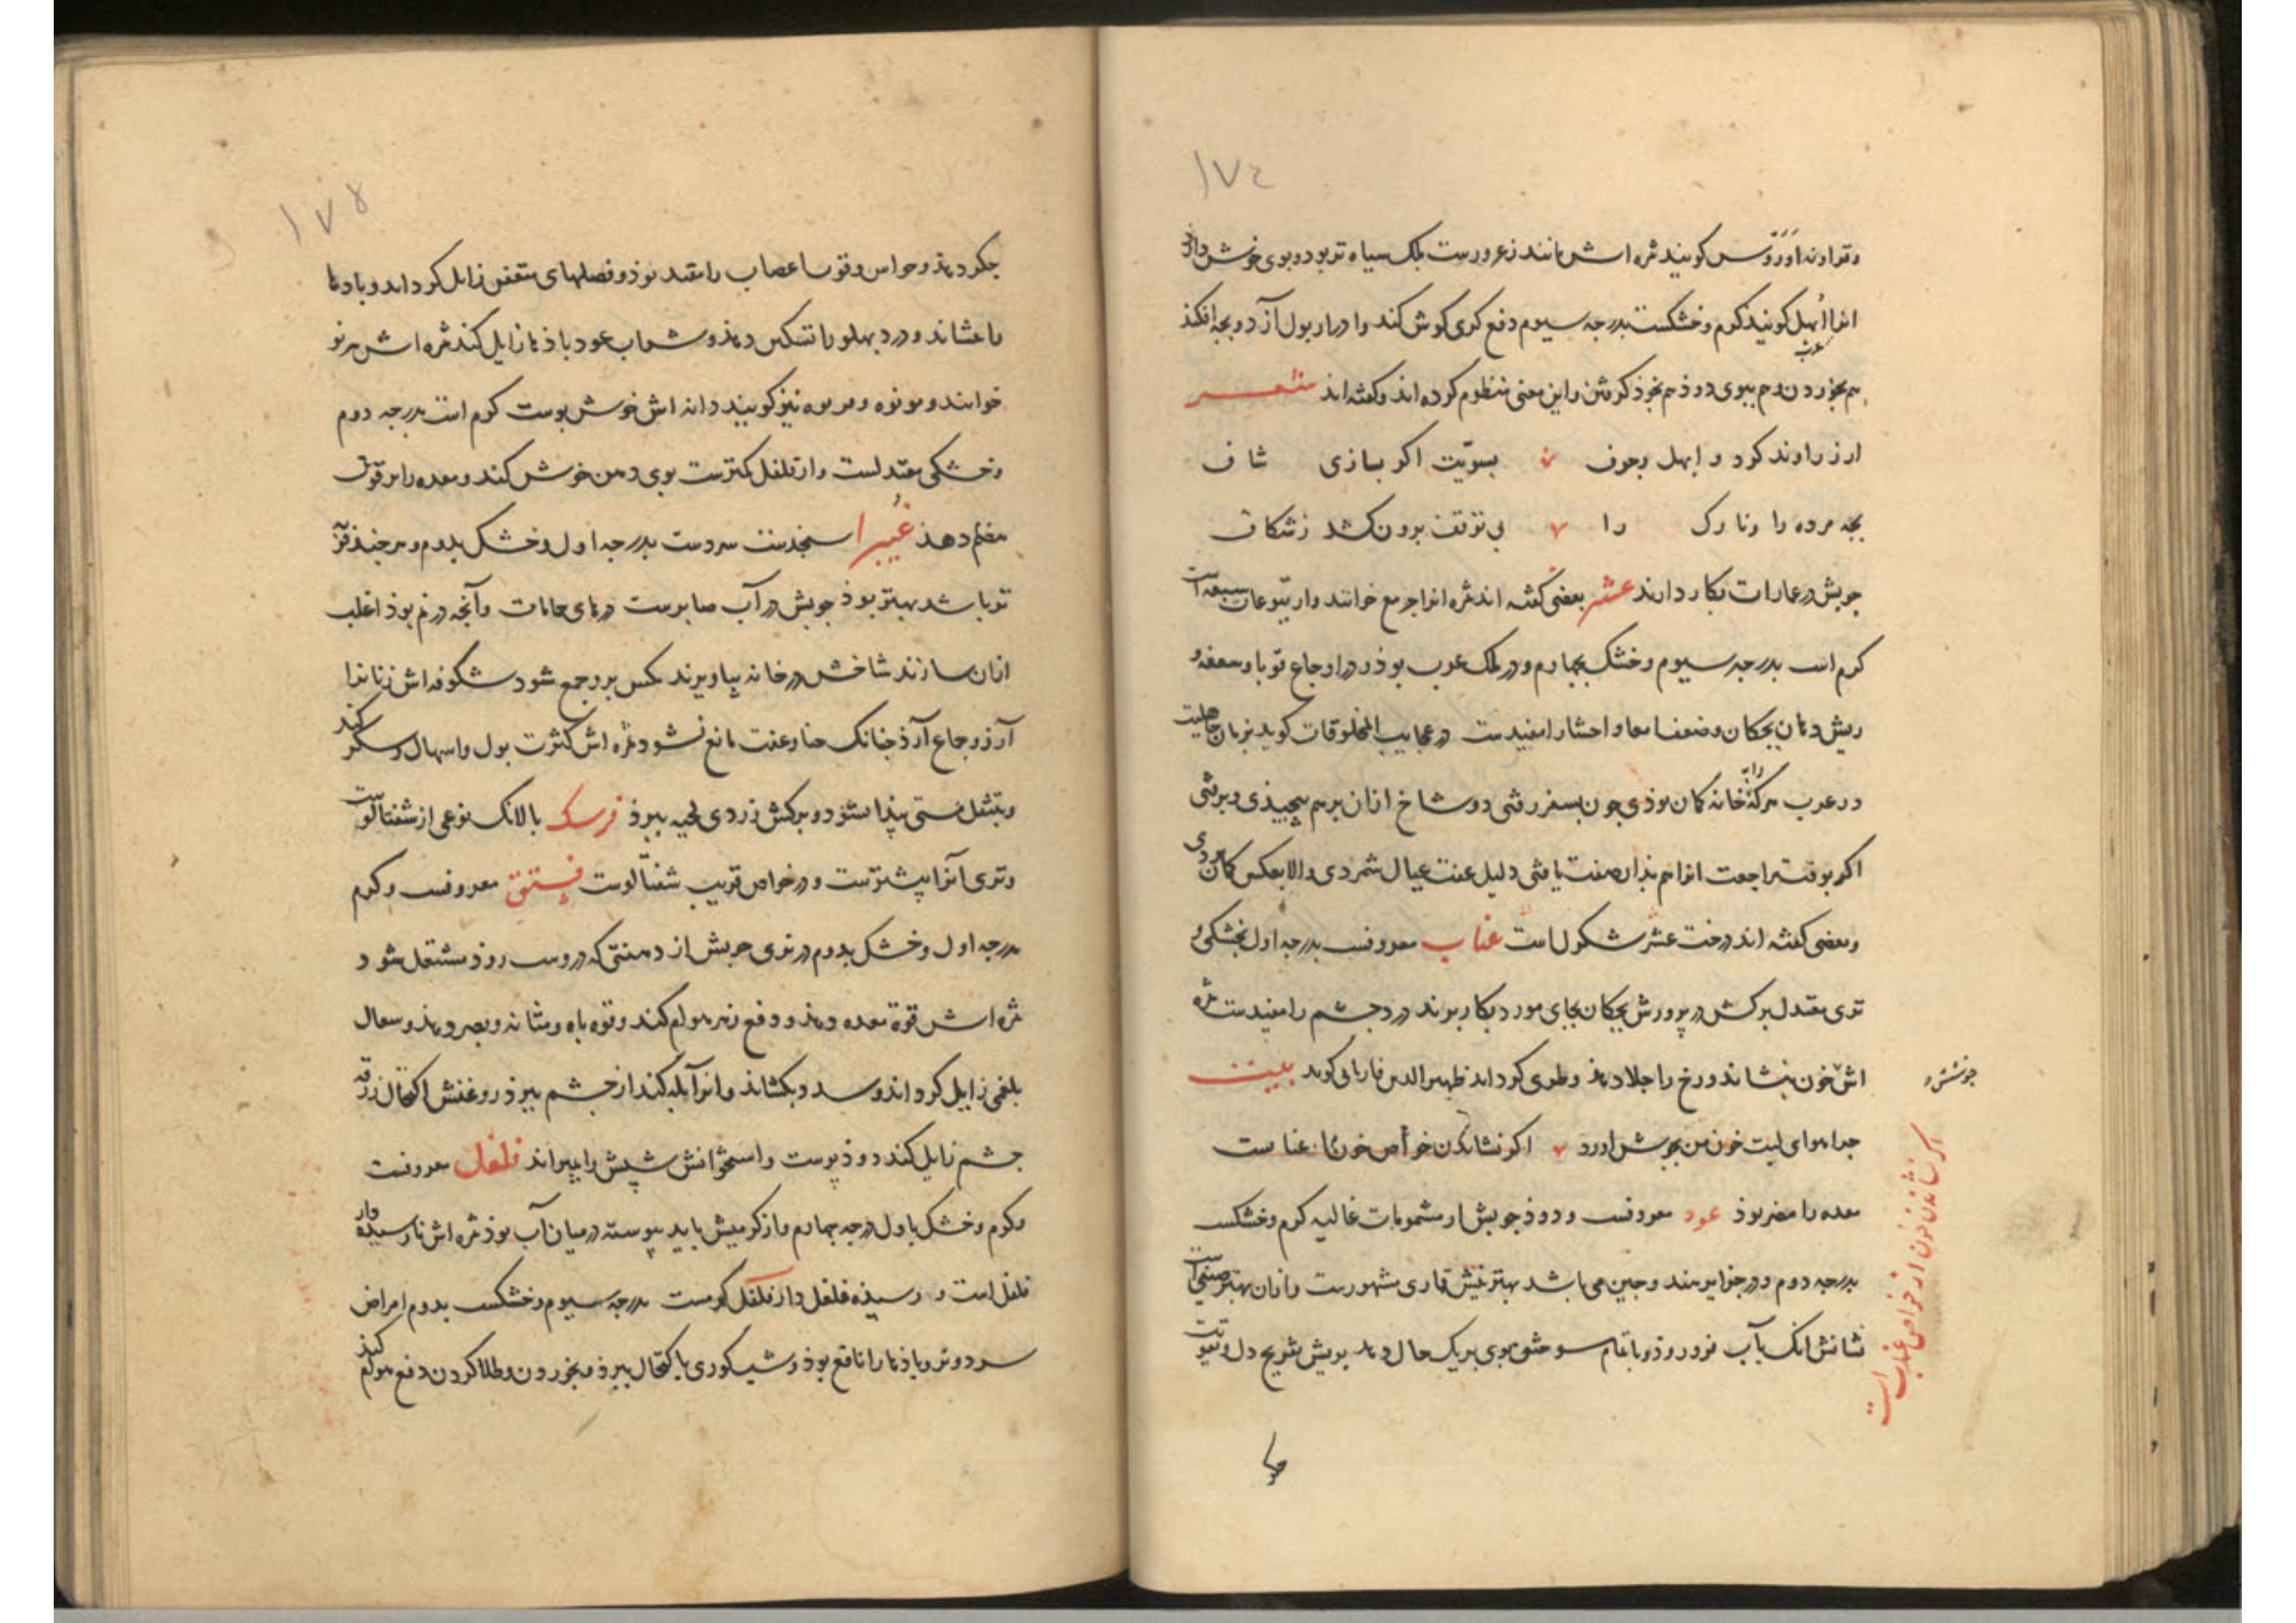 ۱۷۴
اورّوس کویند ثمره اش مانند زعرورست بلک سیاه تر بود و بوی خوش دارد
انرا ابهل کویند کرم و خشکست بدرجه سیوم دفع کری کوش کند و ادرار بول آرد و بچه افکند
عرب
هم بخوردن و هم ببوی دود هم بخود کرفتن و این معنی منظوم کرده اند و کفته اند شعر
ارزراوند کرد و ابهل بسویت اکر بسازی شاف
بچه مرده را و نا را بی توقف برون کشد زشکاف
جوبش در عمارات بکار دارند عشر بعضی کفته اند ثمره انرا خوانند و از یتوعات سبعه است
کرم است بدرجه سیوم و خشک بچهارم و در ملک عرب بوذ و در اوجاع قوبا و سعفه و
ریش دهان بچکان و ضعف امعا و احشا را مفیدست در عجایب المخلوقات کوید بزمان جاهلیت
در عرب هرکه را بخانه کمان بوذی چون بسفر رفتی دو شاخ ازان برهم پیچیذی و برفتی
اکر بوقت مراجعت انرا هم بذان صفت یافتی دلیل عفت عیال شمردی و الا بعکس کمان بردی
وبعضی کفته اند درخت عشر است عناب معروفست بدرجه اول بخشکی و
تری معتدل برکش در پرورش بچکان بجای مورد بکار برند درد چشم را مفیدست ثمره
اش خون بنشاند و رخ را جلا دهذ و طری کرداند ظهیر الدین فاریابی کوید بیت
جوشش
چرا هوای لبت خون من بجوش اورد اکر نشاندن خون از خواص عنابست
اکر نشاندن خون از خواص عناب است
معده را مضر بوذ عود معروفست و دوذ چوبش از مشمومات غالیه کرم و خشکست
بدرجه دوم و در جزایر هند و چین می باشد بهترینش قماری مشهورست و ازان بهتر صینی است
نشانش انک بآب فرو روذ و تا تمام سوختن بوی بریک حال دهد بویش تفریح دل و تقویت
جکر
۱۷۵
جکر دهذ و حواس و قوت اعصاب را مفید بوذ و فضلهای متعفن زایل کرداند و بادها
بنشاند و درد پهلو را تسکین دهذ و شراب عود باذها زایل کند ثمره اش هرنو
خوانند و هرنوه و نیز کویند دانه اش خوش بوست کرم است بدرجه دوم
وخشکی معتدلست و از فلفل کمترست بوی دهن خوش کند و معده را بر قوت
هضم دهذ غبیرا سنجدست سردست بدرجه اول و خشک بدوم و هرچند
باشد بهتر بوذ چوبش در آب صابرست درهای حمامات و آنچه در نم بوذ اغلب
ازان سازند شاخش در خانه بیاویزند مکس برو جمع شود شکوفه اش زنانرا
آرزو جماع آرذ چنانک حیا و عفت مانع نشود ثمره اش کثرت بول و اسهال و سکر کند
وبتنقل مستی پیذا نشود و برکش زردی لحیه ببرذ فرسک بالانک نوعی از شفتالوست
وتری آنرا بیشترست و در خواص قریب شفتالوست فستق معروفست و کرم
بدرجه اول و خشک بدوم در تری چوبش از دهنیتی که دروست زوذ مشتعل شود
ثمره اش قوة معده دهذ و دفع زهر هوام کند و قوه باه و مثانه و بصر دهذ و سعال
بلغمی زایل کرداند و سده بکشاند و اثر آبله کند از چشم ببرذ روغنش اکتحال زرقه
چشم زایل کند دوذ پوست و استخوانش شپش را بمیراند فلفل معروفست
وکرم و خشک باول درجه چهارم و از کرمیش باید پیوسته در میان آب بوذ ثمره اش نارسیده دار
فلفل است و رسیذه فلفل دار فلفل کرمست بدرجه سیوم و خشکست بدوم امراض
سرد و تر و باذها را نافع بوذ و شبکوری باکتحال ببرذ و بخوردن و طلا کردن دفع هوام کند